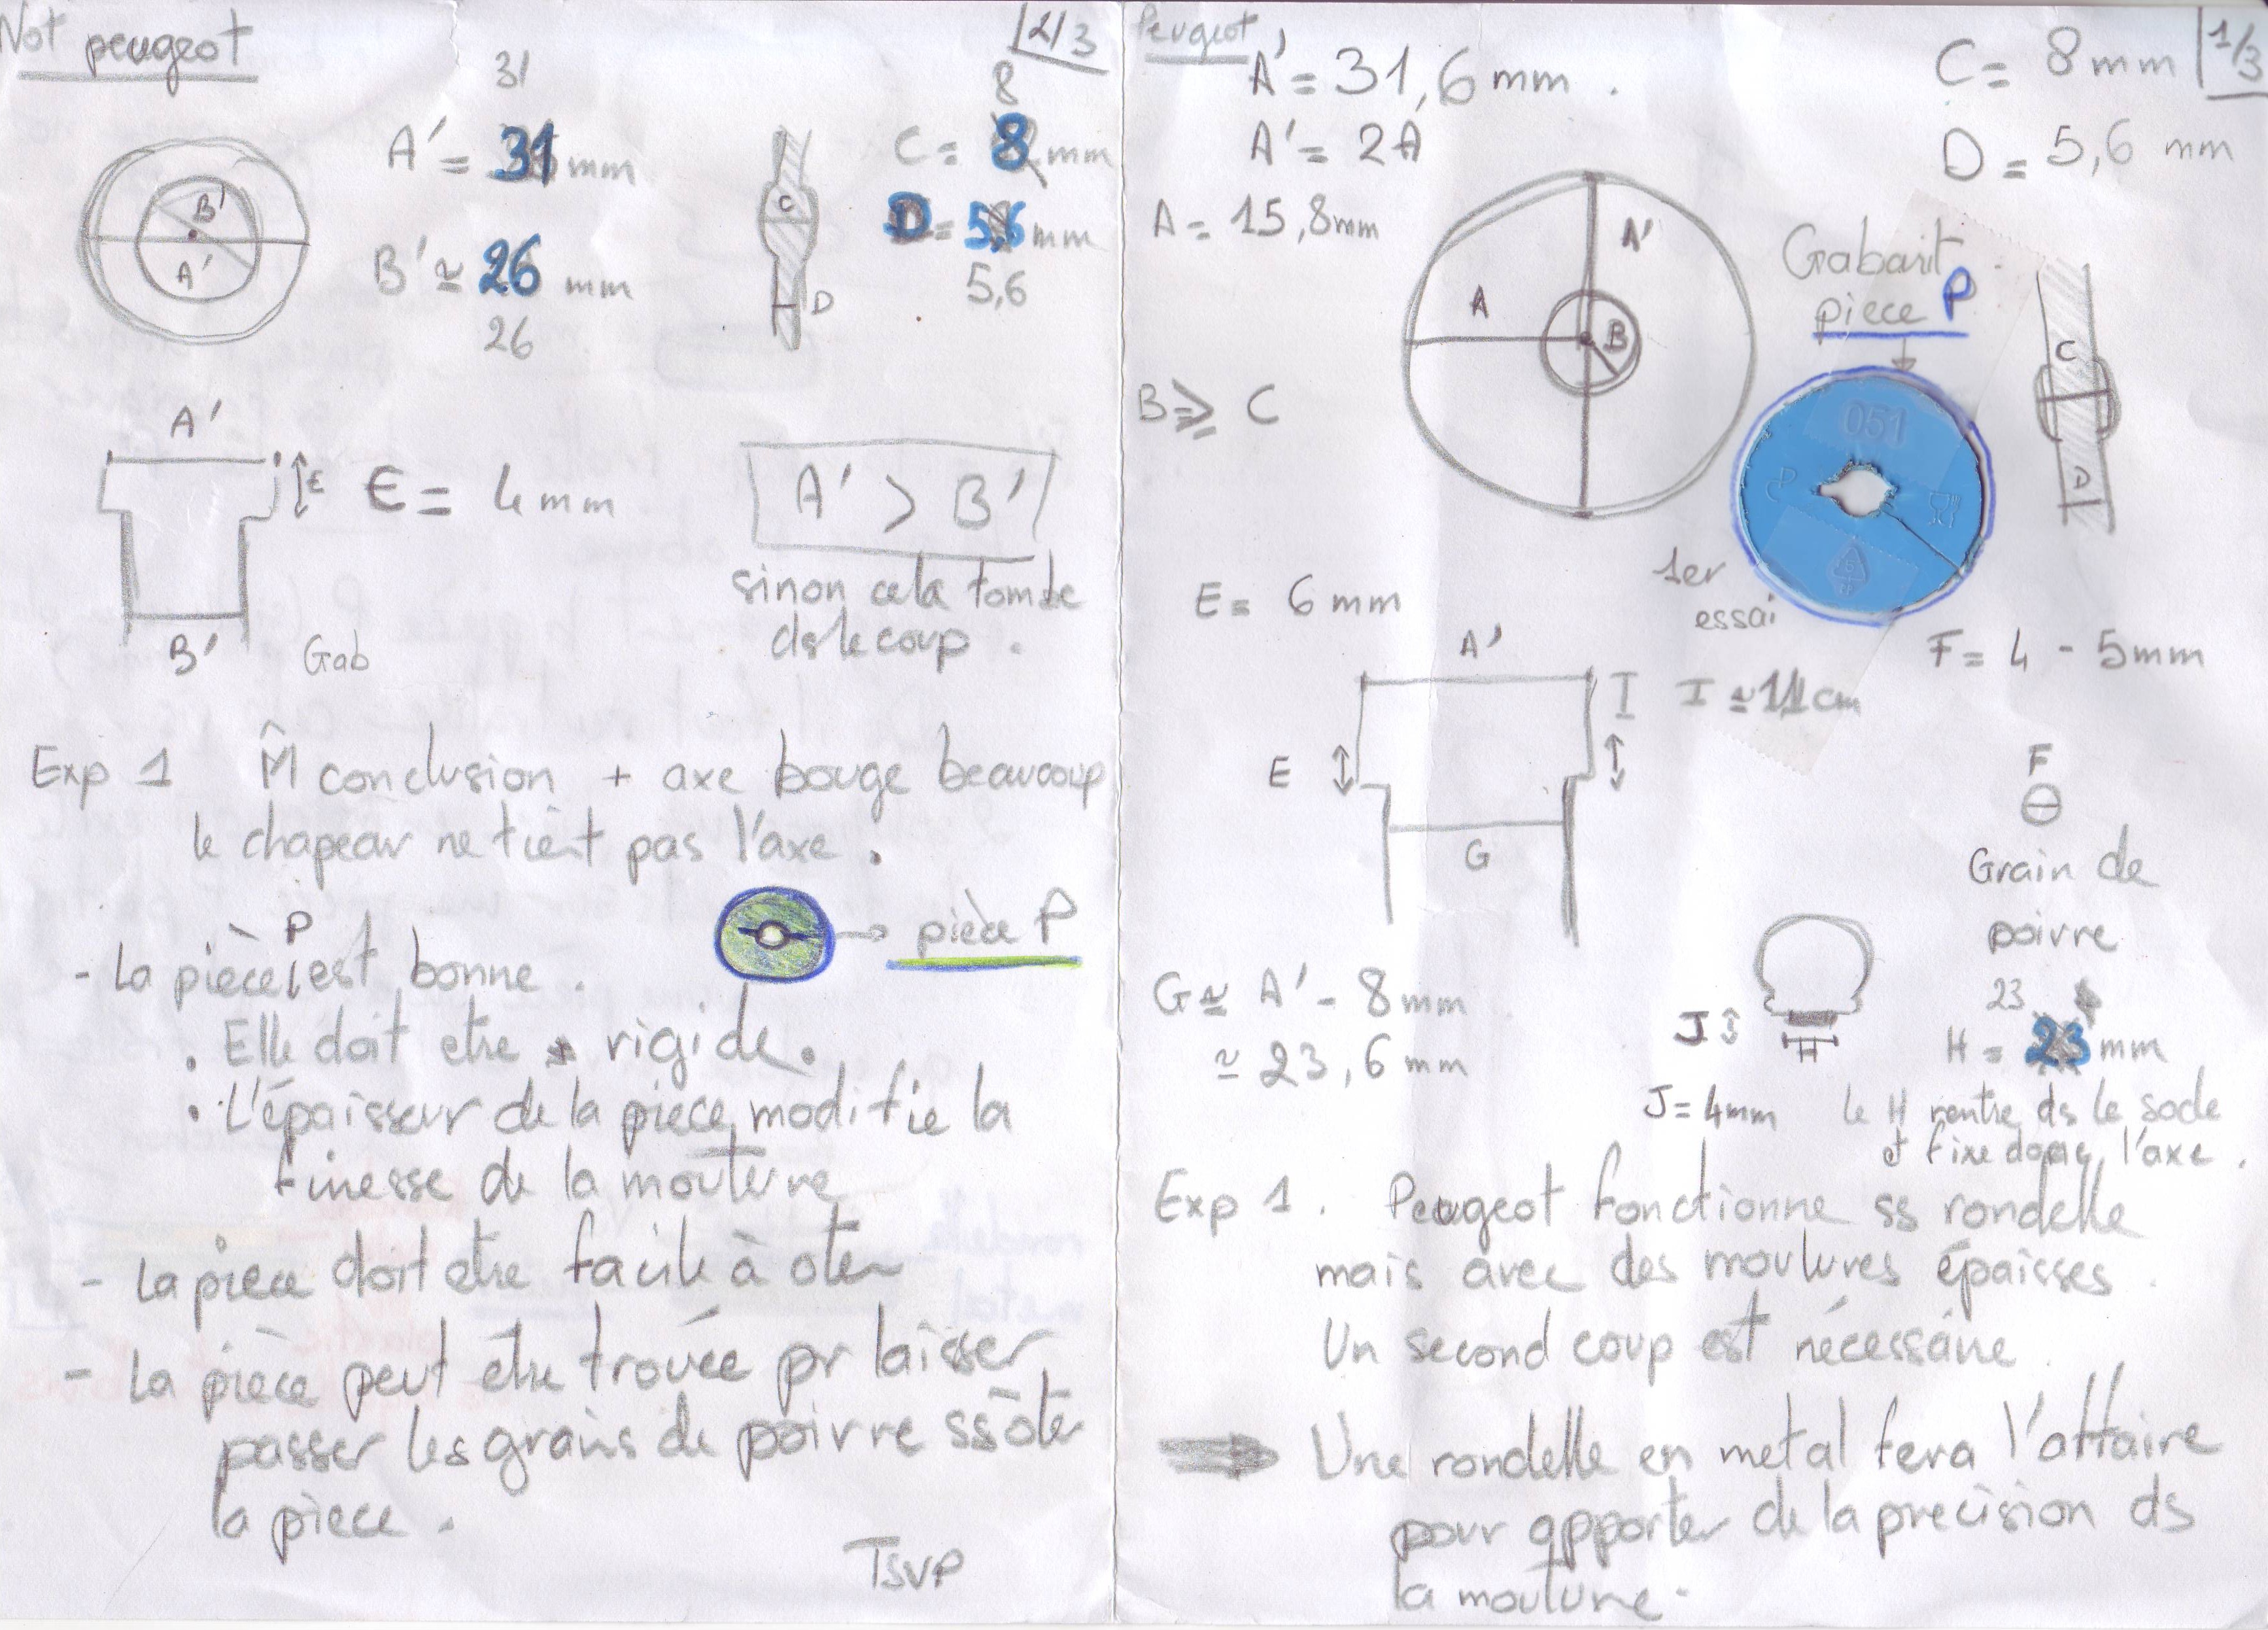 Not peugeot
2/3
31
A' = 31 mm
B'
A'
B' ≃ 26 mm
26
8
C = 8 mm
D = 5,6 mm
5,6
C
D
A'
E
E = 4 mm
B'
Gab
A' > B'
sinon cela tombe
ds le coup .
Exp 1 M̂ conclusion + axe bouge beaucoup
le chapeau ne tient pas l'axe .
- La pièce P est bonne .
→ pièce P
. Elle doit etre rigide.
. L'épaisseur de la piece modifie la
finesse de la mouture
- La pièce doit etre facile à oter
- La pièce peut etre trouée pr laisser
passer les grains de poivre ss ôter
la piece .
TSVP
Peugeot
1/3
A' = 31,6 mm .
A' = 2A
A = 15,8mm
C = 8 mm
D = 5,6 mm
A'
A
B
Gabarit
piece P
051
1er
essai
C
D
B ⩾ C
E = 6 mm
F = 4 - 5mm
A'
I
I ≃ 1,1 cm
E
G
F
Grain de
poivre
G ≃ A' - 8 mm
≃ 23,6 mm
J
H
23
H = 23 mm
J = 4mm
le H rentre ds le socle
et fixe donc l'axe .
Exp 1 . Peugeot fonctionne ss rondelle
mais avec des moutures épaisses .
Un second coup est nécessaire .
⇒ Une rondelle en metal fera l'affaire
pour apporter de la precision ds
la mouture.